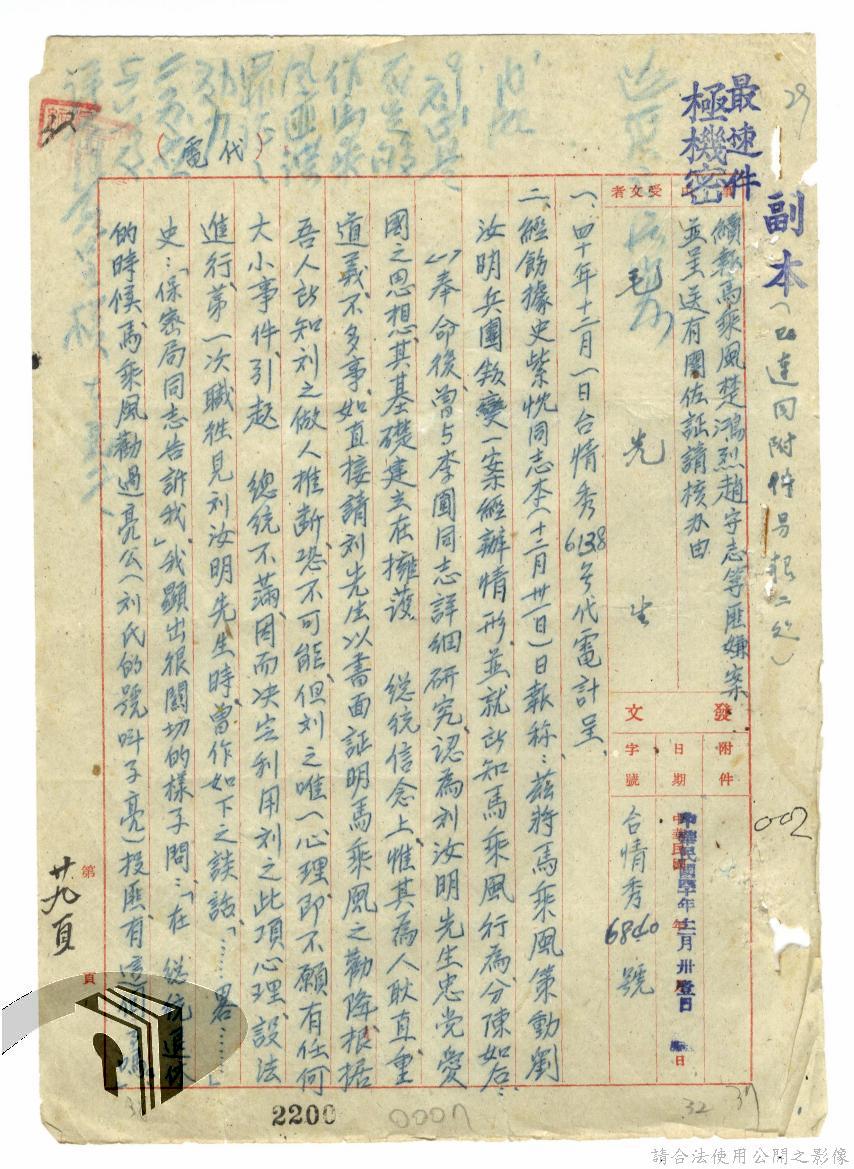 最速件
極機密
副本
(已連同附件另報二處)
(代電)
受文者
毛先生
續報馬乘風楚鴻烈趙守志等匪嫌案
並呈送有關佐証請核办由
發文
附件
日期
字號
中華民國四十年十二月卅壹日
台情秀6840號
一、四十年十二月一日台情秀6138号代電計呈、
二、經飭據史紫忱同志本(十二月卅一日)日報称:茲將馬乘風策動劉
汝明兵團叛變一案經辦情形並就所知馬乘風行為分陳如后:
(一)奉命後、曾与李圓同志詳細研究、認為刘汝明先生忠党愛
國之思想、其基礎建立在擁護 總統信念上、惟其為人耿直重
道義、不多事、如直接請刘先生以書面証明馬乘風之勸降、根据
吾人所知刘之做人推断、恐不可能、但刘之唯一心理即不願有任何
大小事件引起 總統不滿、因而决定利用刘之此項心理、設法
進行、第一次職往見刘汝明先生時、曾作如下之談話、「……畧……」
史:「保密局同志告訴我、」我顯出很関切的樣子問:「在 總統退休
的時候、馬乘風勸過亮公(刘氏的號叫子亮)投匪、有這個事
第頁
廿九頁
2200
0007
002
29
32
37
請合法使用公開之影像